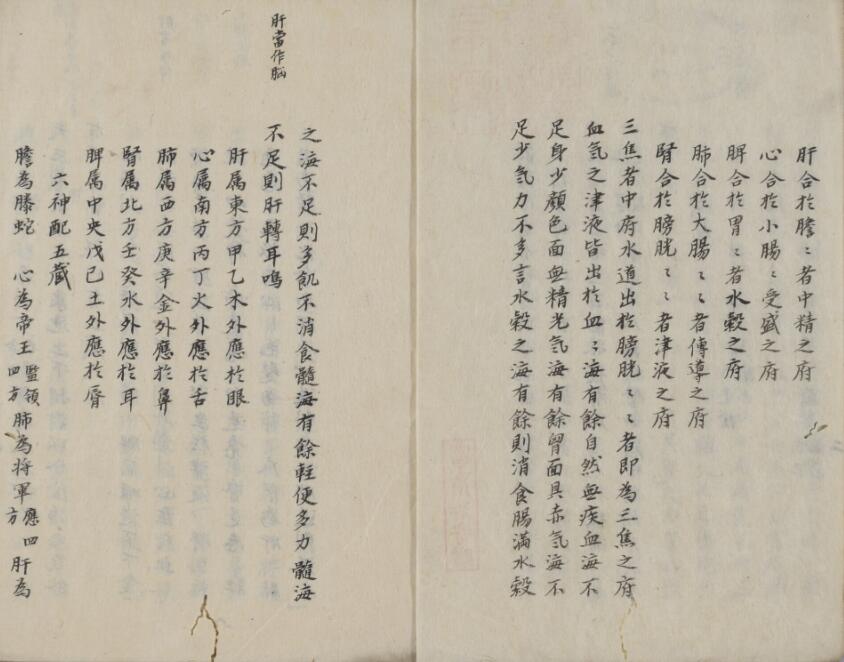 肝合於膽〻者中精之府
心合於小腸〻受盛之府
脾合於胃〻者水穀之府
肺合於大腸〻〻者傳導之府
腎合於膀胱〻〻者津液之府
三焦者中府水道出於膀胱〻〻者即為三焦之府
血氣之津液皆出於血〻海有餘自然無疾血海不
足身少顏色面無精光氣海有餘胷面具赤氣海不
足少氣力不多言水穀之海有餘則消食腸滿水穀
之海不足則多飢不消食髓海有餘輊便多力髓海
肝當作脳
不足則肝轉耳鳴
肝属東方甲乙木外應於眼
心属南方丙丁火外應於舌
肺属西方庚辛金外應於鼻
腎属北方壬癸水外應於耳
脾属中央戊己土外應於唇
六神配五藏
膽為螣蛇 心為帝王監領四方肺為将軍應四方肝為